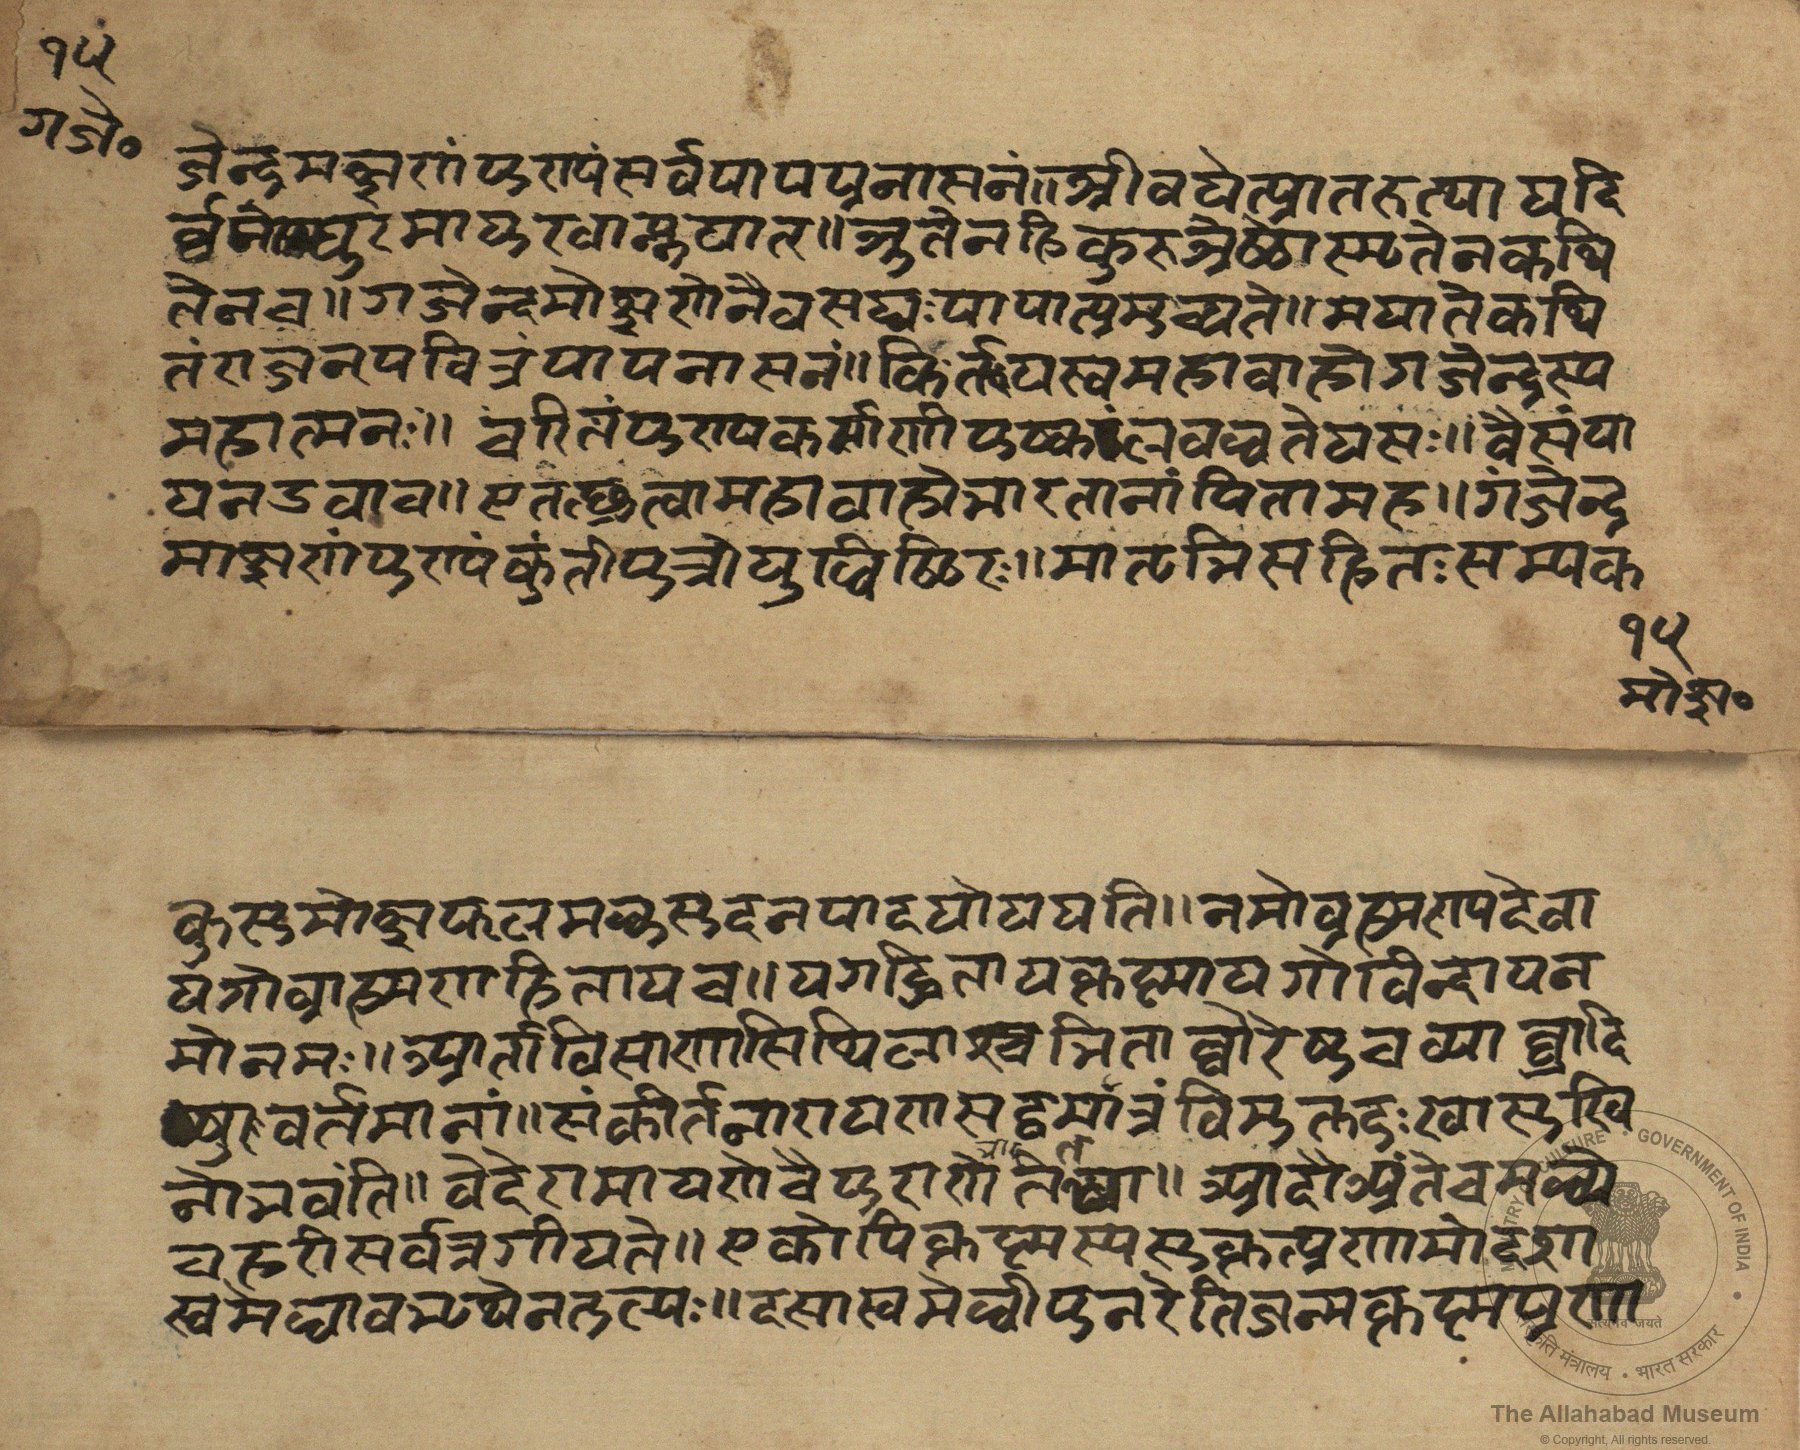 १५
गजे॰
जेन्द्रमोक्षणं पुण्यं सर्वपापप्रनासनं॥ श्रीवयेत्प्रातरुत्थायदि
र्घमायुरमाप्नुयात्॥ श्रुतेन हि कुरुश्रेष्ठो स्मृतेन कथि
तेन च॥ गजेन्द्रमोक्षणेनैव सद्यः पापात्प्रमुच्यते॥ मयाते कथि
तं राजन पवित्रं पापनासनं॥ किर्त्तयस्व महावाहो गजेन्द्रस्य
महात्मनः॥ चरितं पुण्यकर्माणी पुष्कलं वर्धते यसः॥ वैसंपा
यन उवाच॥ एतत्छ्रुत्वा महावाहो भारतानां पितामह॥ गजेन्द्र
मोक्षणं पुण्यं कुंतीपुत्रो युधिष्ठिरः॥ भातृभि सहितः सम्यक
१५
मोक्ष॰
मोक्षफलमधुसुदन पादयोययति॥ नमो व्रह्मण्यदेवा
य गोव्राह्मणहिताय च॥ यगद्धिताय कृष्माय गोविन्दाय न
मो नमः॥ आर्ता विसाणा सिथिलाश्च भिता घोरेषु च व्याघ्रादि
षु वर्तमानां॥ संकीर्त नारायण सद्वमात्रं विमुक्तदुःखा सुखि
नो भवंति॥ वेदे रामायणे चै पुराणे भारते तथा॥ आदौ अंते च मध्ये
च हरी सर्वत्र गीयते॥ एकोपि कृष्मस्य सुकृत्प्रणामो दशा
स्वमेधावभृथेन तुत्यः॥ दसास्वमेधी पुनरेति जन्म कृष्मप्रणा
MINISTRY OF CULTURE • GOVERNMENT OF INDIA
सत्यमेव जयते
संस्कृति मंत्रालय • भारत सरकार
The Allahabad Museum
© Copyright, All rights reserved.